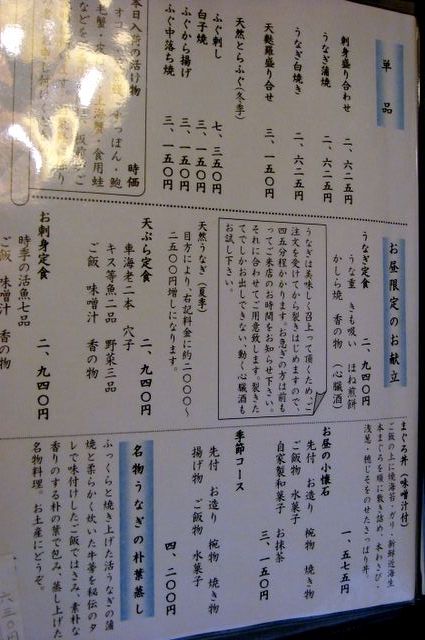 単品
刺身盛り合わせ 二、六二五円
うなぎ蒲焼 二、六二五円
うなぎ白焼き 二、六二五円
天麩羅盛り合せ 三、一五〇円
天然とらふぐ(冬季)
ふぐ刺し 七、三五〇円
ふぐから揚げ 三、一五〇円
白子焼 三、一五〇円
ふぐ中落ち焼 三、一五〇円
本日入荷の活け物 時価
すっぽん・鮑
上海蟹・食用蛙
などを
お昼限定のお献立
うなぎ定食 二、九四〇円
うな重 きも吸い ほね煎餅
かしら焼 香の物 (心臓酒)
うなぎは美味しく召上って頂くため、ご
注文を受けてから裂きはじめますので、
四五分程かかります。お急ぎの方は前も
ってご来店のお時間をお知らせ下さい。
それに合わせてご用意致します。裂きた
てでしかお出しできない、動く心臓酒も
お試し下さい。
天然うなぎ(夏季)
目方により、右記料金に約二〇〇〇〜
二五〇〇円増しになります。
天ぷら定食 二、九四〇円
車海老二本 穴子
キス等魚二品 野菜三品
ご飯 味噌汁 香の物
お刺身定食 二、九四〇円
時季の活魚七品
ご飯 味噌汁 香の物
まぐろ丼(味噌汁付) 一、五七五円
ご飯の上に焼海苔・ガリ・新鮮近海生
本まぐろを順に敷き詰め、本わさび・
浅葱・穂じそをのせたさっぱり丼。
お昼の小懐石 三、一五〇円
先付 お造り 椀物 焼き物
ご飯物 水菓子
自家製和菓子 お抹茶
季節コース 四、二〇〇円
先付 お造り 椀物 焼き物
揚げ物 ご飯物 水菓子
名物うなぎの朴葉蒸し
ふっくらと焼き上げた活うなぎの蒲
焼と柔らかく炊いた牛蒡を秘伝のタ
レで味付けしたご飯ではさみ、素朴な
香りのする朴の葉で包み、蒸し上げた
名物料理。お土産にどうぞ。
六三〇円